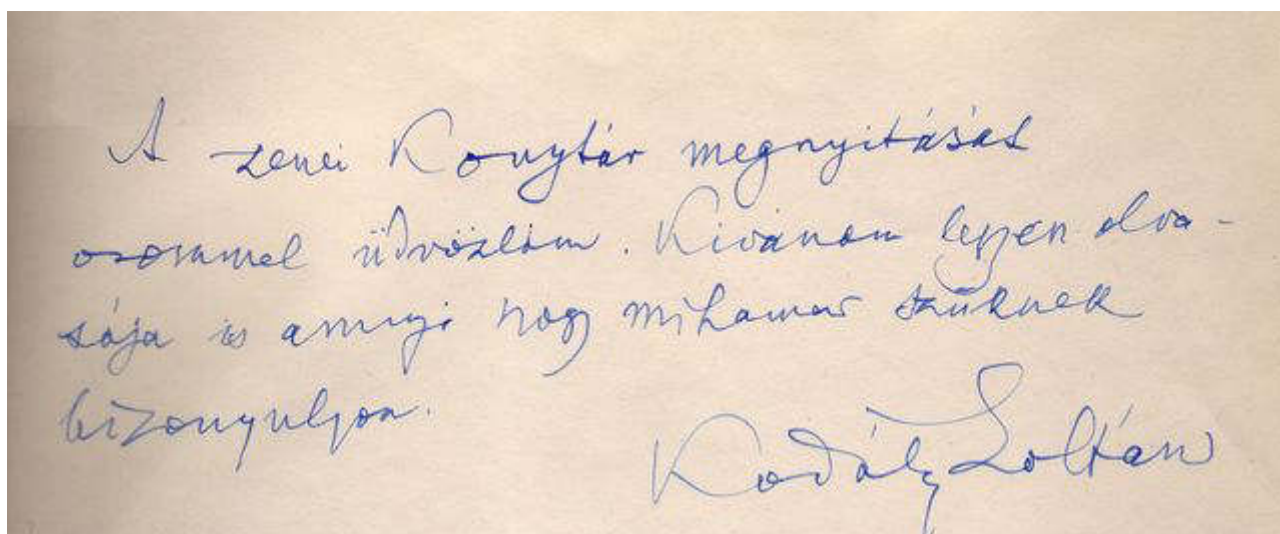 A zenei Könytár megnyitását
örömmel üdvözlöm. Kivánom legyen olva-
sója is annyi hogy mihamar szűknek
bizonyuljon.
Kodály Zoltán